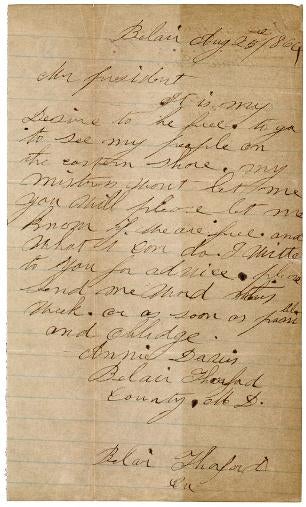 Belair Aug 25th 1864
Mr president
It is my
Desire to be free. to go
to see my people on
the eastern shore. my
mistress wont let me
you will please let me
know if we are free. and
what i can do. I write
to you for advice. please
send me word this
week. or as soon as possible
and oblidge.
Annie Davis
Belair Thorford
County, MD.
Belair Thoford
Co